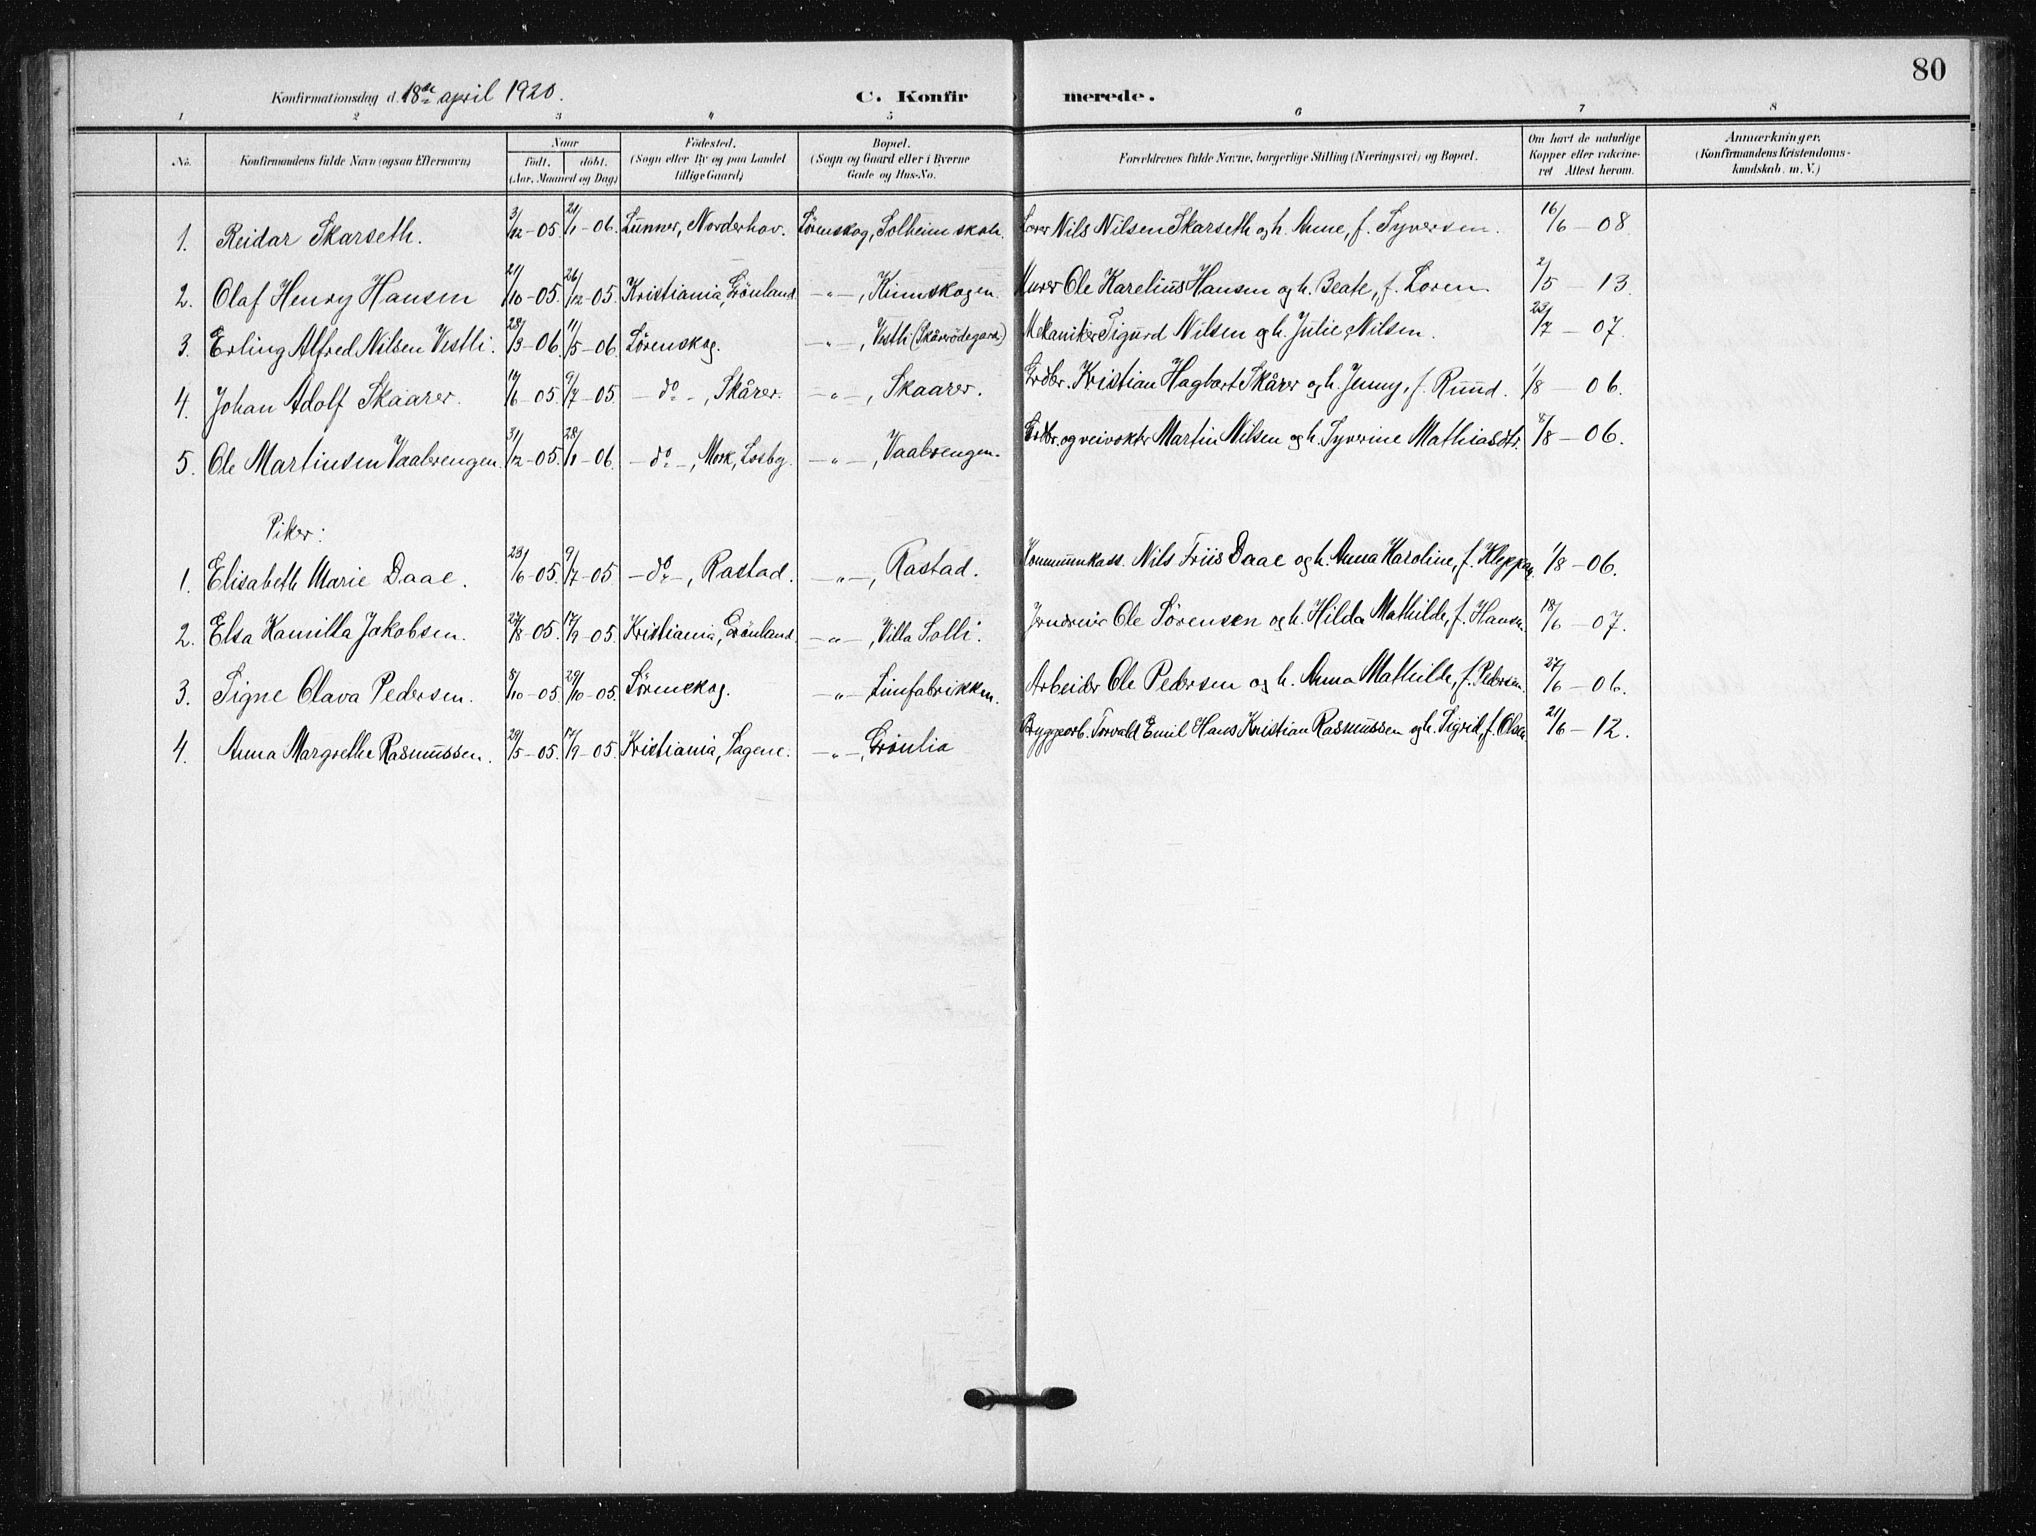 80
Konfirmationsdag d. 18de april 1920. C. Konfir merede.
1 2 3 4 5 6 7 8
No. Konfirmandens fulde Navn (ogsaa Efternavn) Naar født. døbt. (Aar, Maaned og Dag) Fødested. (Sogn eller By og paa Landet tillige Gaard) Bopæl. (Sogn og Gaard eller i Byerne Gade og Hus-No. Forældrenes fulde Navne, borgerlige Stilling (Næringsvei) og Bopæl. Om havt de naturlige Kopper eller vakcineret Attest herom. Anmærkninger. (Konfirmandens Kristendomskundskab. m. V.)
1. Reidar Skarseth. 3/12-05. 21/1-06. Lunner, Norderhov. Lørenskog, Solheim skole. Lærer Nils Nilsen Skarseth og h. Anne, f. Syversen. 16/6-08.
2. Olaf Henry Hansen 21/10-05. 26/12-05. Kristiania, Grønland. -"-, Kinnskogen. Murer Ole Karelius Hansen og h. Beate, f. Loren 2/5-13.
3. Erling Alfred Nilsen Vestli. 28/3-06. 11/5-06. Lørenskog. -"-, Vestli (Skårerødegård) Mekaniker Sigurd Nilsen og h. Julie Nilsen. 23/7-07.
4. Johan Adolf Skaarer. /6-05. 9/7-05. -do-, Skårer. -"-, Skaarer. Grdbr. Kristian Hagbart Skårer og h. Jenny, f. Ruud. 1/8-06.
5. Ole Martinsen Vaalerengen. 31/12-05. 28/1-06. -do-, Mork, Losby. -"-, Vaalrengen. Grdbr. og veivokter Martin Nilsen og h. Syverine Mathiasdtr. /8-06.
Piker:
1. Elisabeth Marie Daae. 23/6-05. 9/7-05. -do-, Rastad. -"-, Rastad. Kommunekass. Nils Friis Daae og h. Anna Karoline, f. Kleppan. 1/8-06.
2. Elsa Kamilla Jakobsen. 27/8-05. 17/9-05. Kristiania, Grønland. -"-, Villa Solli. Jerndreier Ole Sørensen og h. Hilda Mathilde, f. Hansen. 18/6-07.
3. Signe Olava Pedersen. 8/10-05. 29/10-05. Lørenskog. -"- Limfabrikken. Arbeider Ole Pedersen og h. Anna Mathilde, f. Pedersen. 27/6-06.
4. Anna Margrethe Rasmussen. 29/5-05. 17/9-05. Kristiania, Sagene. -"-, Grønlia Byggearb. Torvald Emil Hans Kristian Rasmussen og h. Sigrid, f. Olsen. 21/6-12.